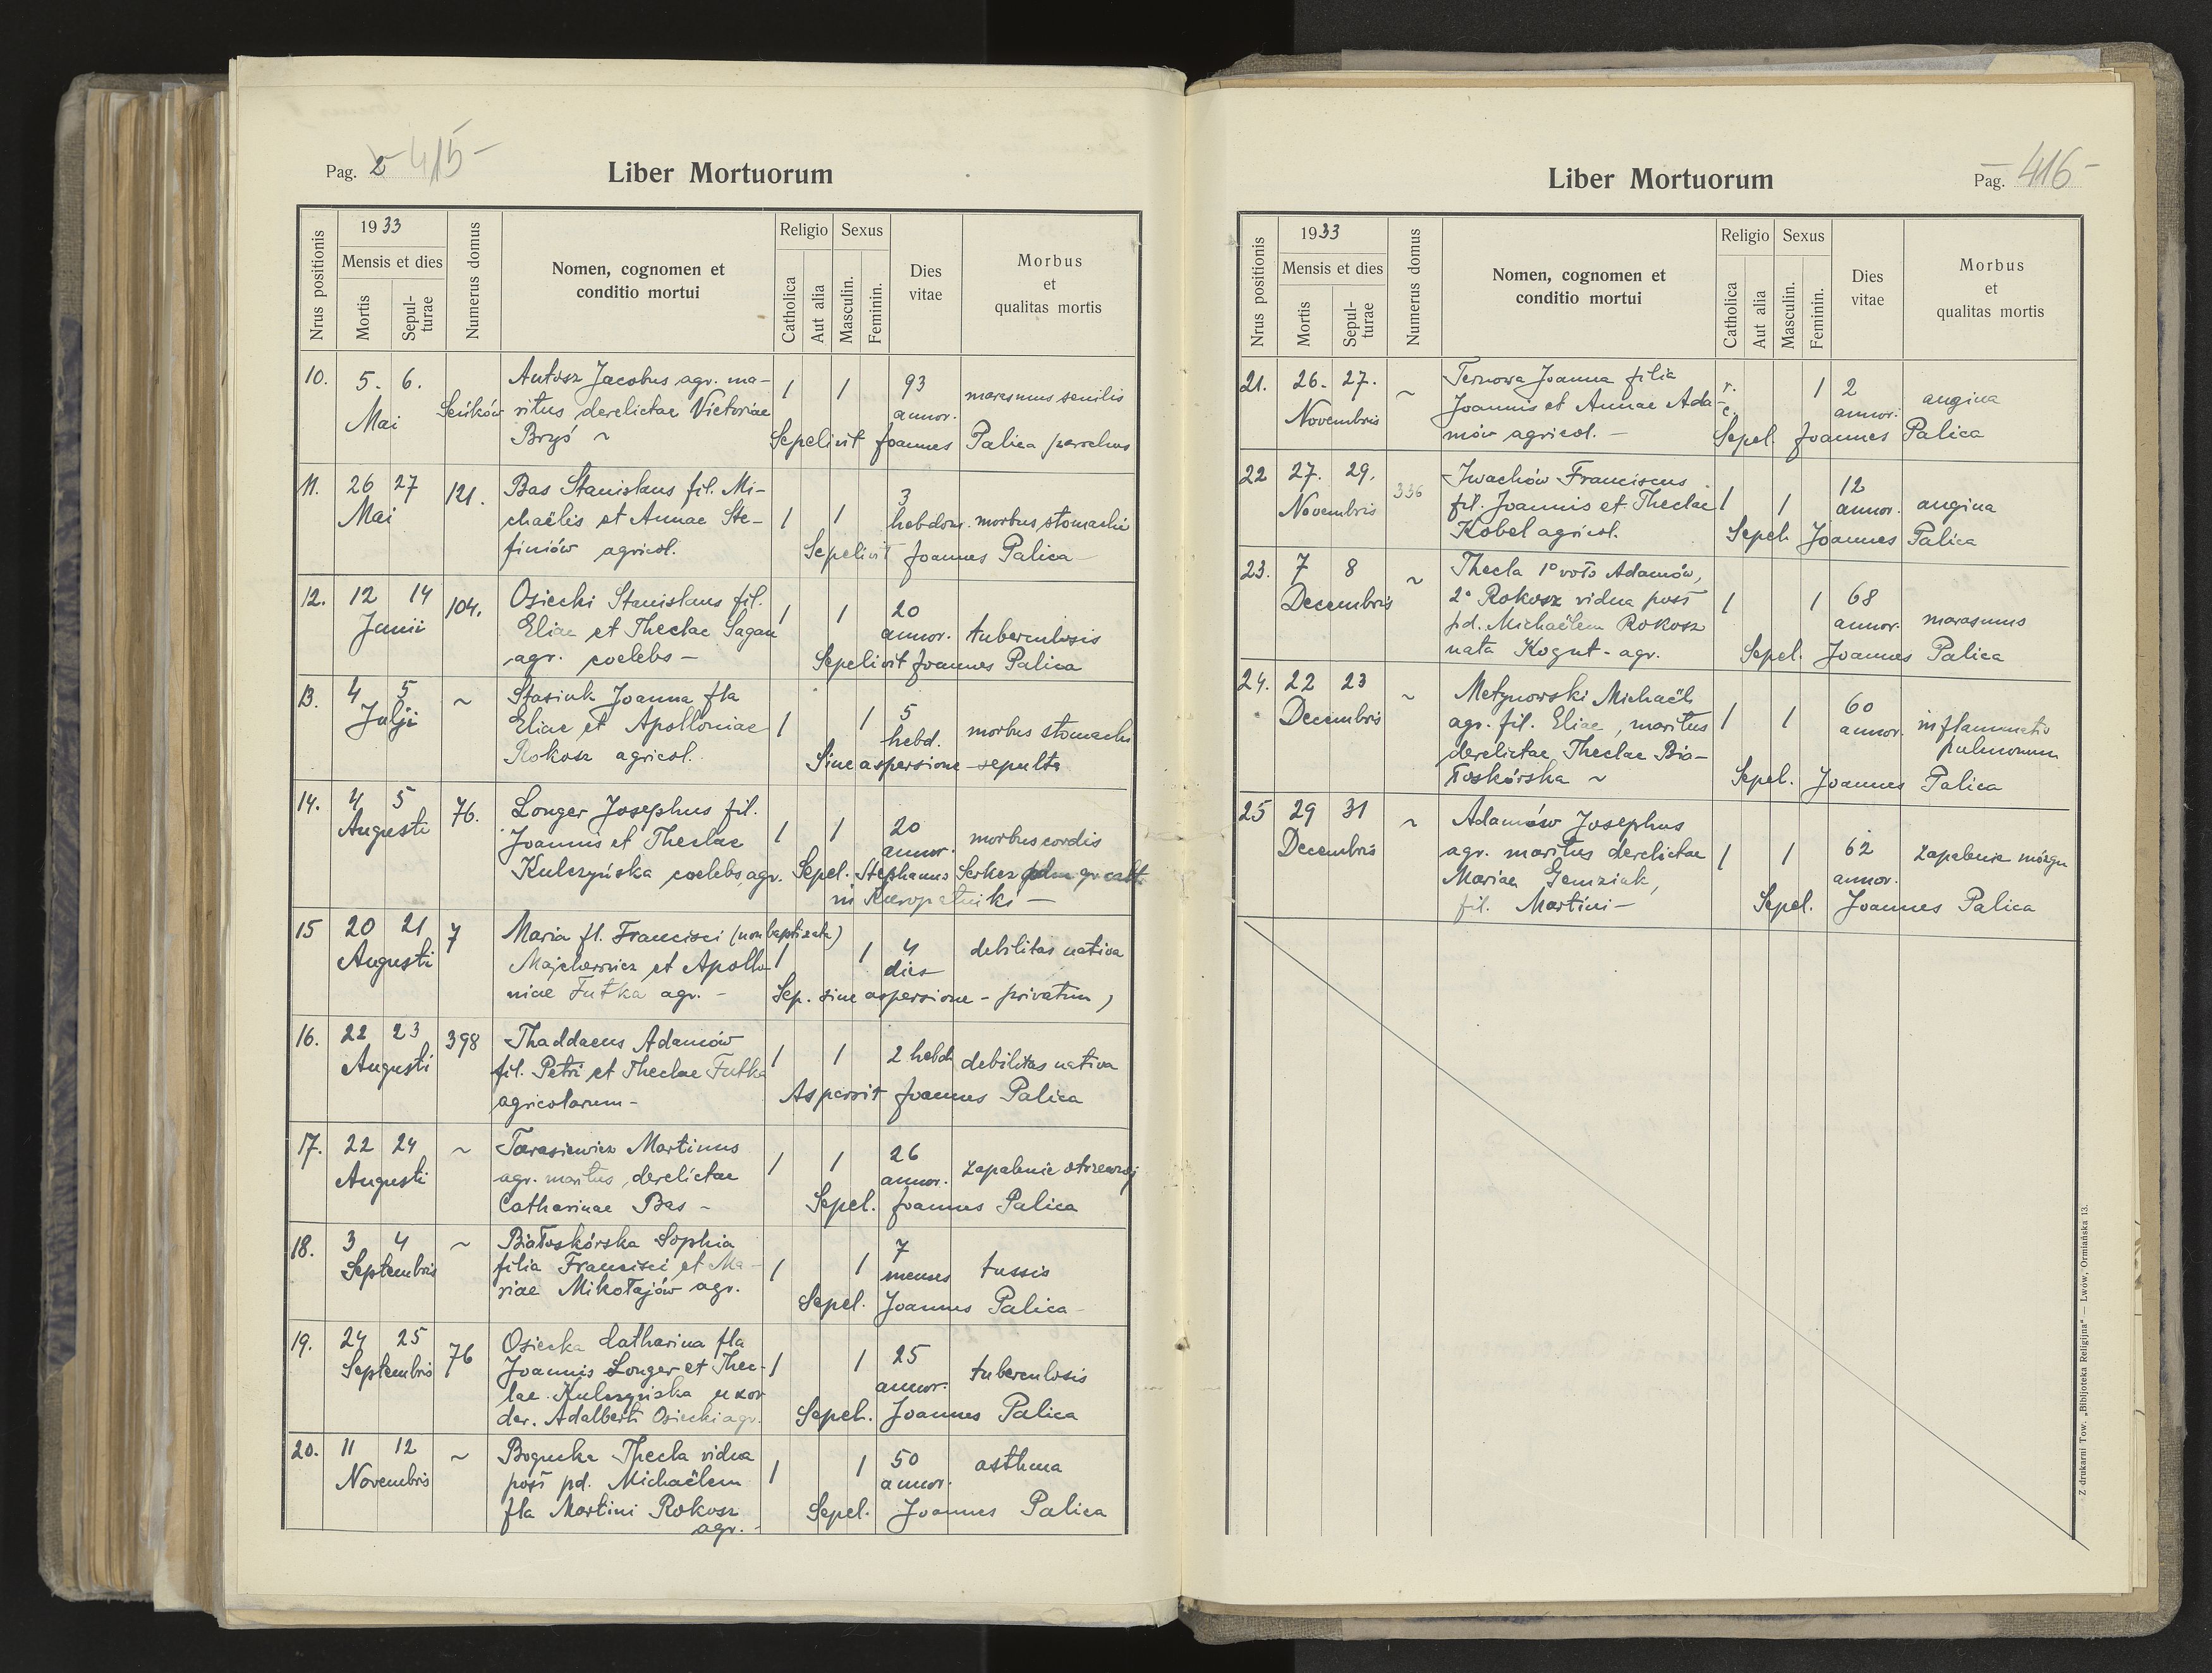 Pag. 2 -415-
Liber Mortuorum
Nrus positionis
1933
Mensis et dies
Mortis
Sepul-
turae
Numerus domus
Nomen, cognomen et
conditio mortui
Religio
Catholica
Aut alia
Sexus
Masculin.
Feminin.
Dies
vitae
Morbus
et
qualitas mortis
10. 5. 6. Antosz Jacobus agr. ma- 1 1 93 marasmus senilis
Mai Seńków ritus derelictae Victoriae annor.
Bryś ~ Sepelivit Joannes Palica parochus
11. 26 27 121. Bas Stanislaus fil. Mi- 3
Mai chaëlis et Annae Ste- 1 1 hebdom. morbus stomachi
finiów agricol. Sepelivit Joannes Palica
12. 12 14 104. Osiecki Stanislaus fil. 1 1 20
Junii Eliae et Theclae Sagan annor. tuberculosis
agr. coelebs - Sepelivit Joannes Palica
13. 4 5 ~ Stasiuk Joanna fla 1 1 5
Julji Eliae et Apolloniae hebd. morbus stomachi
Rokosz agricol. Sine aspersione sepulta
14. 4 5 76. Longer Josephus fil. 1 1 20
Augusti Joannis et Theclae annor. morbus cordis
Kulczyńska coelebs, agr. Sepel. Stephanus
in Kuropatniki -
15 20 21 7 Maria fl. Francisci (non baptizata)
Augusti Majcherowicz et Apollo- 1 1 4 dies debilitas nativa
niae Futka agr. - Sep. sine aspersione - privatim)
16. 22 23 398 Thaddaeus Adamów
Augusti fil. Petri et Theclae Futka 1 1 2 hebd. debilitas nativa
agricolarum - Aspersit Joannes Palica
17. 22 24 ~ Tarasiewicz Martinus
Augusti agr. maritus, derelictae 1 1 26 annor. zapalenie otrzewnej
Catharinae Bas - Sepel. Joannes Palica
18. 3 4 ~ Białoskórska Sophia
Septembris filia Francisci et Ma- 1 1 7 menses tussis
riae Mikołajów agr. Sepel. Joannes Palica
19. 24 25 76 Osiecka Catharina fla
Septembris Joannis Longer et Thec- 1 1 25 annor. tuberculosis
lae Kulczyńska uxor
der. Adalberti Osiecki agr. Sepel. Joannes Palica
20. 11 12 ~ Bogucka Thecla vidua
Novembris post pd. Michaëlem 1 1 50 annor. asthma
fla Martini Rokosz Sepel. Joannes Palica
agr. -
Liber Mortuorum
Pag. -416-
Nrus positionis
1933
Mensis et dies
Mortis
Sepul-
turae
Numerus domus
Nomen, cognomen et
conditio mortui
Religio
Catholica
Aut alia
Sexus
Masculin.
Feminin.
Dies
vitae
Morbus
et
qualitas mortis
21. 26. 27. ~ Ternowa Joanna filia r. 1 2
Novembris Joannis et Annae Ada- c. annor. angina
mów agricol. - Sepel. Joannes Palica
22 27. 29. 336 Iwachów Franciscus 12
Novembris fil. Joannis et Theclae 1 1 annor. angina
Kobel agricol. Sepel. Joannes Palica
23. 7 8 ~ Thecla 1º voto Adamów,
Decembris 2º Rokosz vidua post 1 1 68
pd. Michaëlem Rokosz annor. marasmus
nata Kogut - agr. Sepel. Joannes Palica
24. 22 23 ~ Metynowski Michaël 60
Decembris agr. fil. Eliae, maritus 1 1 annor. inflammatio
derelictae Theclae Bia- pulmonum
łoskórska ~ Sepel. Joannes Palica
25 29 31 ~ Adamów Josephus
Decembris agr. maritus derelictae 1 1 62 zapalenie mózgu
Mariae Gemziak, annor.
fil. Martini - Sepel. Joannes Palica
Z drukarni Tow. „Bibljoteka Religijna" — Lwów, Ormiańska 13.